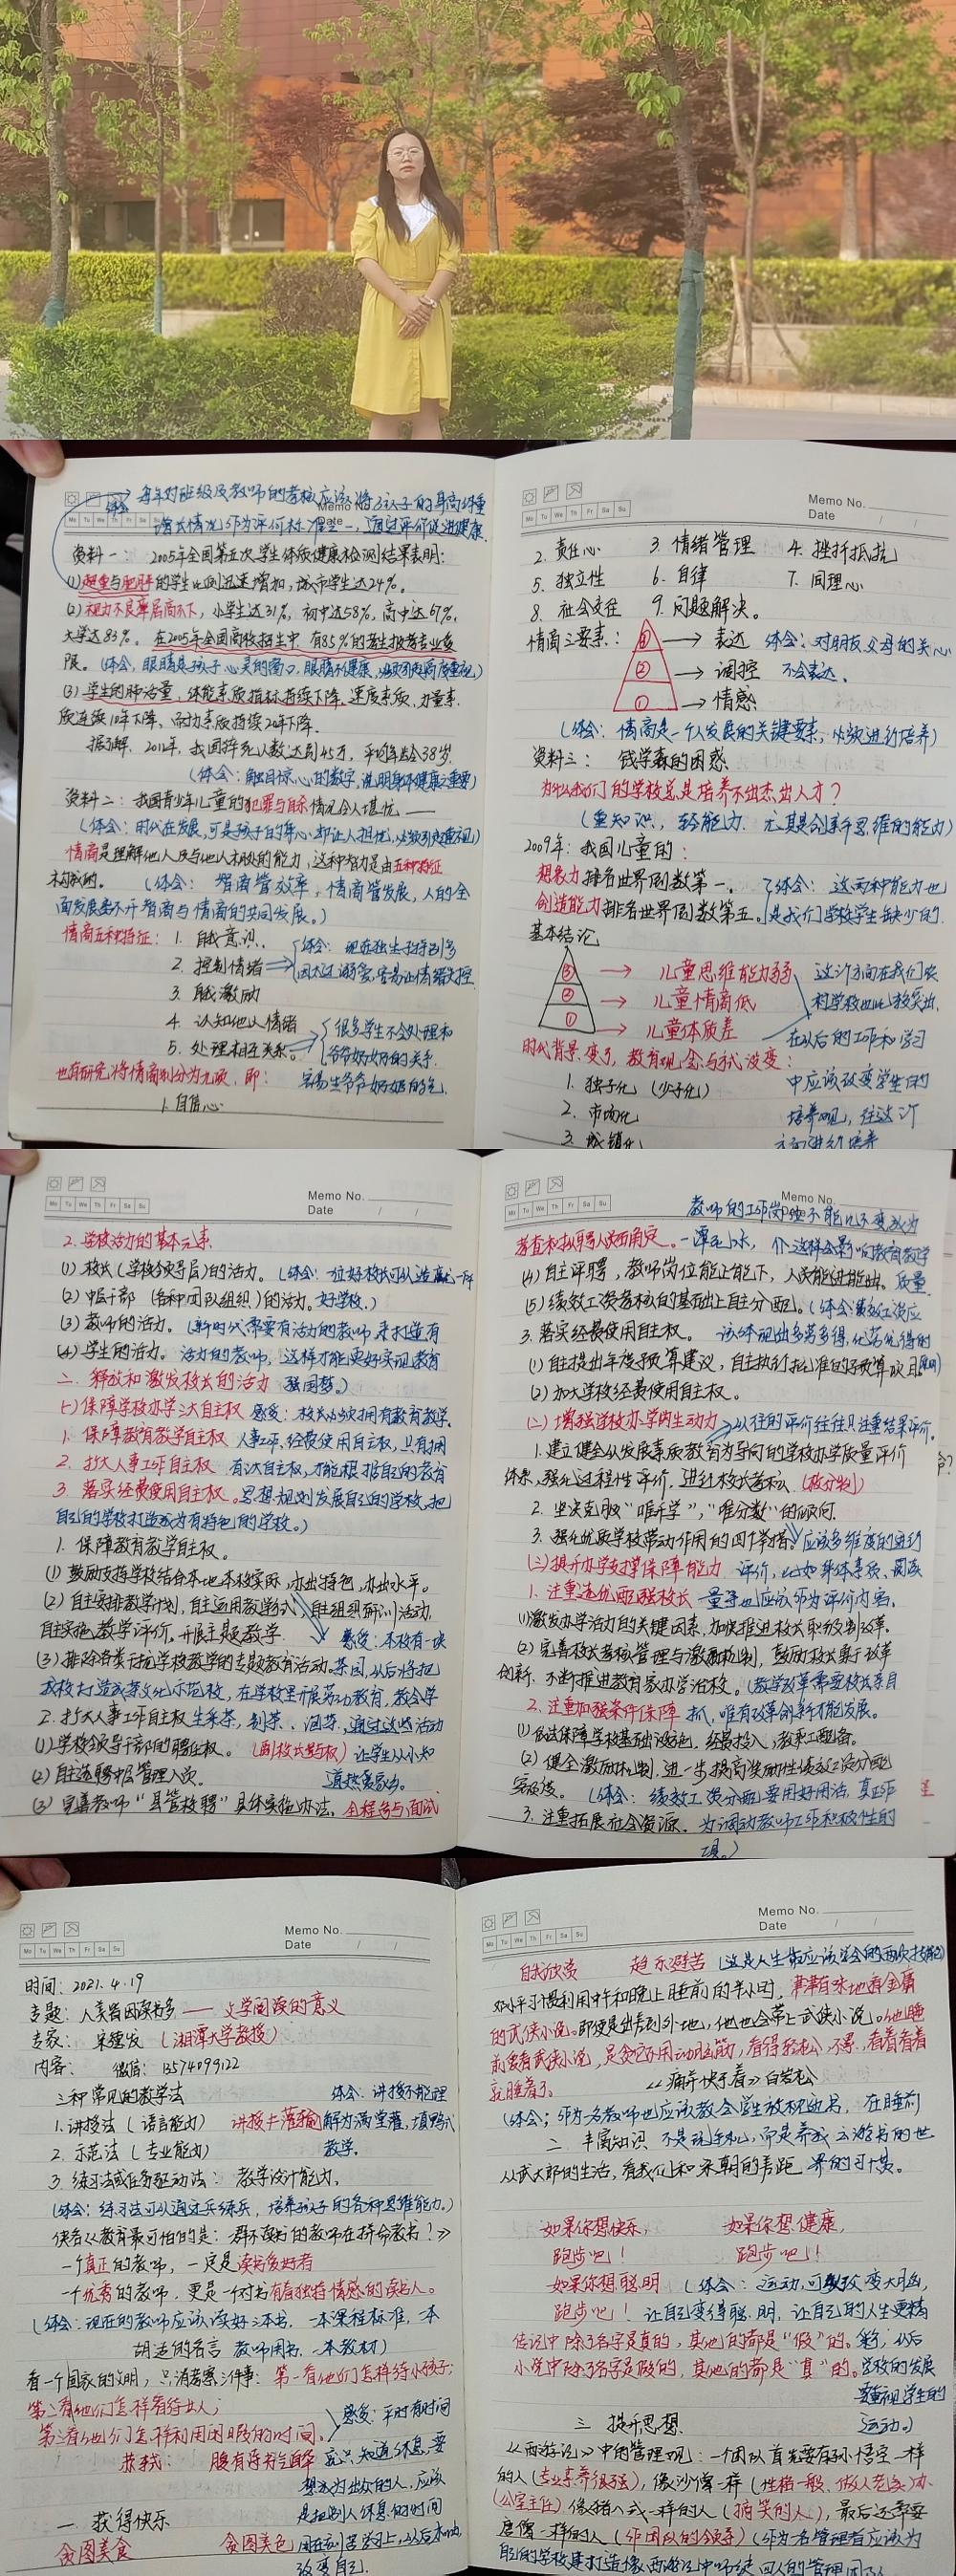 每年对班级及教师的考核应该将孩子的身高体重
增长情况作为评价标准之一,通过评价促进健康.
资料一: 2005年全国第五次学生体质健康检测结果表明:
(1)超重与肥胖的学生比例迅速增加,城市学生达24%。
(2)视力不良率居高不下,小学生达31%,初中达58%,高中达67%,
大学达83%。在2005年全国高校招生中,有85%的考生报考专业受
限。(体会,眼睛是孩子心灵的窗口,眼睛不健康,必须引起高度重视)
(3)学生的肺活量,体能素质指标持续下降,速度素质、力量素
质连续10年下降、耐力素质持续20年下降.
据了解,2012年,我国猝死人数达到45万,平均年龄会38岁.
(体会:触目惊心的数字,说明身体健康之重要)
资料二:我国青少年儿童的犯罪与自杀情况令人堪忧——
(体会:时代在发展,可是孩子的身心却让人担忧,必须引起重视)
情商是理解他人及与他人相处的能力,这种智力是由五种特征
构成的。 (体会: 智商管效率,情商管发展,人的全
面发展离不开智商与情商的共同发展。)
情商五种特征: 1. 自我意识. 体会: 现在独生子特别多
2. 控制情绪 因太过溺爱,容易让情绪失控.
3. 自我激励
4. 认知他人情绪 很多学生不会处理和
5. 处理相互关系。 爷爷奶奶的关系.
也有研究将情商划分为九项,即: 容易生爷爷奶奶的气
1. 自信心
Memo No.
Date
2. 责任心 3. 情绪管理 4. 挫折抵抗
5. 独立性 6. 自律 7. 同理心
8. 社会交往 9. 问题解决。
情商三要素: ③ → 表达 体会:对朋友,父母的关心
② → 调控 不会表达.
① → 情感
(体会: 情商是一个人发展的关键要素,必须进行培养)
资料三: 钱学森的困惑
为什么我们的学校总是培养不出杰出人才?
(重知识,轻能力,尤其是创新思维的能力)
2009年:我国儿童的:
想象力排名世界倒数第一. 体会: 这两种能力也
创造能力排名世界倒数第五. 是我们学校学生缺少的.
基本结论
③ → 儿童思维能力弱 这方面在我们农
② → 儿童情商低 村学校也比较突出,
① → 儿童体质差 在以后的工作和学习
时代背景变了,教育观念与方式没变: 
1. 独子化 (少子化) 中应该改变学生的
2. 市场化 培养观,往这个
3. 城镇化 方面进行培养
Mo Tu We Th Fr Sa Su
Memo No.
Date / /
2. 学校活力的基本元素.
(1) 校长(学校领导层)的活力。(体会:一位好校长可以造就一所
(2) 中层干部 (各种团队组织)的活力. 好学校.)
(3) 教师的活力。(新时代需要有活力的教师,来打造有
(4) 学生的活力。活力的教师,这样才能更好实现教育
二、释放和激发校长的活力 强国梦。)
(一)保障学校办学三大自主权 感受:校长必须拥有教育教学.
1. 保障教育教学自主权 人事工作,经费使用自主权,只有拥
2. 扩大人事工作自主权 有三大自主权,才能根据自己的教育
3. 落实经费使用自主权。思想规划发展自己的学校,把
自己的学校打造成为有特色的学校。)
1. 保障教育教学自主权。
(1) 鼓励支持学校结合本地本校实际,办出特色,办出水平。
(2) 自主安排教学计划,自主运用教学方式,自主组织研训活动,
自主实施教学评价,开展主题教学. 感受:本校有一块
(3) 排除各类干扰学校教学的专题教育活动. 茶园,以后将把
我校打造成茶文化示范校,在学校里开展劳动教育,教会学
2. 扩大人事工作自主权 生采茶,制茶、泡茶,通过这些活动
(1) 学校领导干部的聘任权。(副校长参与权) 让学生从小知
(2) 自主选聘中层管理人员. 道热爱家乡。
(3) 完善教师“县管校聘”具体实施办法,全程参与面试
Memo No.
Date / /
教师的工作岗位不能几十不变成为
考查和拟聘人员的确定。一潭死水,
(4) 自主评聘,教师岗位能上能下,人员能进能出. 质量
(5) 绩效工资考核的基础上自主分配。(体会:绩效工资应
3. 落实经费使用自主权。 该体现出多劳多得,优劳优得的
(1) 自主提出年度预算建议,自主执行批准的预算项目 原则)
(2) 加大学校经费使用自主权。
(二)增强学校办学内生动力 以往的评价往往只注重结果评价.
1. 建立健全以发展素质教育为导向的学校办学质量评价
体系,强化过程性评价,进行校长考核.
2. 坚决克服“唯升学”,“唯分数”的倾向.
3. 强化优质学校带动作用的四个举措。应该多维度的进行
(三)提升办学支撑保障能力 评价,比如身体素质、阅读
1. 注重选优配强校长 量等也应该作为评价内容。
(1)激发办学活力的关键因素,加快推进校长职级制改革.
(2) 完善校长考核管理与激励机制,鼓励校长勇于改革
创新.不断推进教育家办学治校。(教学改革需要校长亲自
2. 注重加强条件保障 抓,唯有改革创新才能发展。
(1) 依法保障学校基础设施,经费投入,教职工配备。
(2) 健全激励机制,进一步提高奖励性绩效工资分配
(体会: 绩效工资分配要用好用活,真正作
3. 注重拓展社会资源. 为调动教师工作积极性的
工具。)
Memo No.
Date / /
时间: 2021.4.19
专题: 人美皆因读书多——文学阅读的意义
专家: 宋德发 (湘潭大学教授)
内容: 微信: 13574099122
三种常见的教学法 体会: 讲授不能理
1. 讲授法(语言能力) 讲授≠灌输 解为满堂灌,填鸭式
2. 示范法(专业能力) 教学.
3. 练习法或任务驱动法: 教学设计能力.
(体会: 练习法可以通过兵练兵,培养孩子的各种思维能力。)
《教育最可怕的是: 一群不读书的教师在拼命教书!》
一个真正的教师,一定是读书爱好者
一个优秀的教师,更是一个对书有着独特情感的读书人。
(体会:现在的教师应该读好三本书,一本课程标准,一本
胡适的名言 教师用书,一本教材)
看一个国家的文明,只消考察三件事: 第一看他们怎样待小孩子;
第二看他们怎样看待女人;
第三看他们怎样利用闲暇的时间。 感受: 平时有时间
苏轼: 腹有诗书气自华 就只知道休息,要
想成为出众的人,应该
是把别人休息的时间
一 获得快乐 用在刻苦学习上,以后本如此
贪图美食 贪图美色 改变自己.
Memo No.
Date / /
自我欣赏 趋乐避苦 (这是人生最应该学会的两项技能)
邓小平习惯利用中午和晚上睡前的半小时,津津有味地看金庸
的武侠小说。即使是出差到外地,他也会带上武侠小说。他睡
前爱看武侠小说,是贪它不用动脑筋,看得轻松,不累,看着看着
就睡着了. 《痛并快乐着》白岩松
(体会:作为一名教师也应该教会学生放松函书,在睡前
二 丰富知识 不是玩手机,而是养成云游书的世
从武大郎的生活,看我们和宋朝的差距. 界的习惯。
如果你想快乐, 如果你想健康,
跑步吧! 跑步吧!!
如果你想聪明 (体会: 运动可以改变大脑,
跑步吧! 让自己变得聪明,让自己的人生更精
传记中除了名字是真的,其他的都是“假”的。彩,以后
小说中除了名字是假的,其他的都是“真”的。学校的发展
要重视学生的
三 提升思想. 运动。)
《西游记》中的管理观: 一个团队首先要有孙悟空一样
的人(专业素养很强),像沙僧一样(性格一般,做人老实)办
(公室主任)像猪八戒一样的人(搞笑的人),最后还需要
唐僧一样的人(作团队的领导)(作为一名管理者应该为
自己的学校建打造像西游记中师徒四人的管理团队